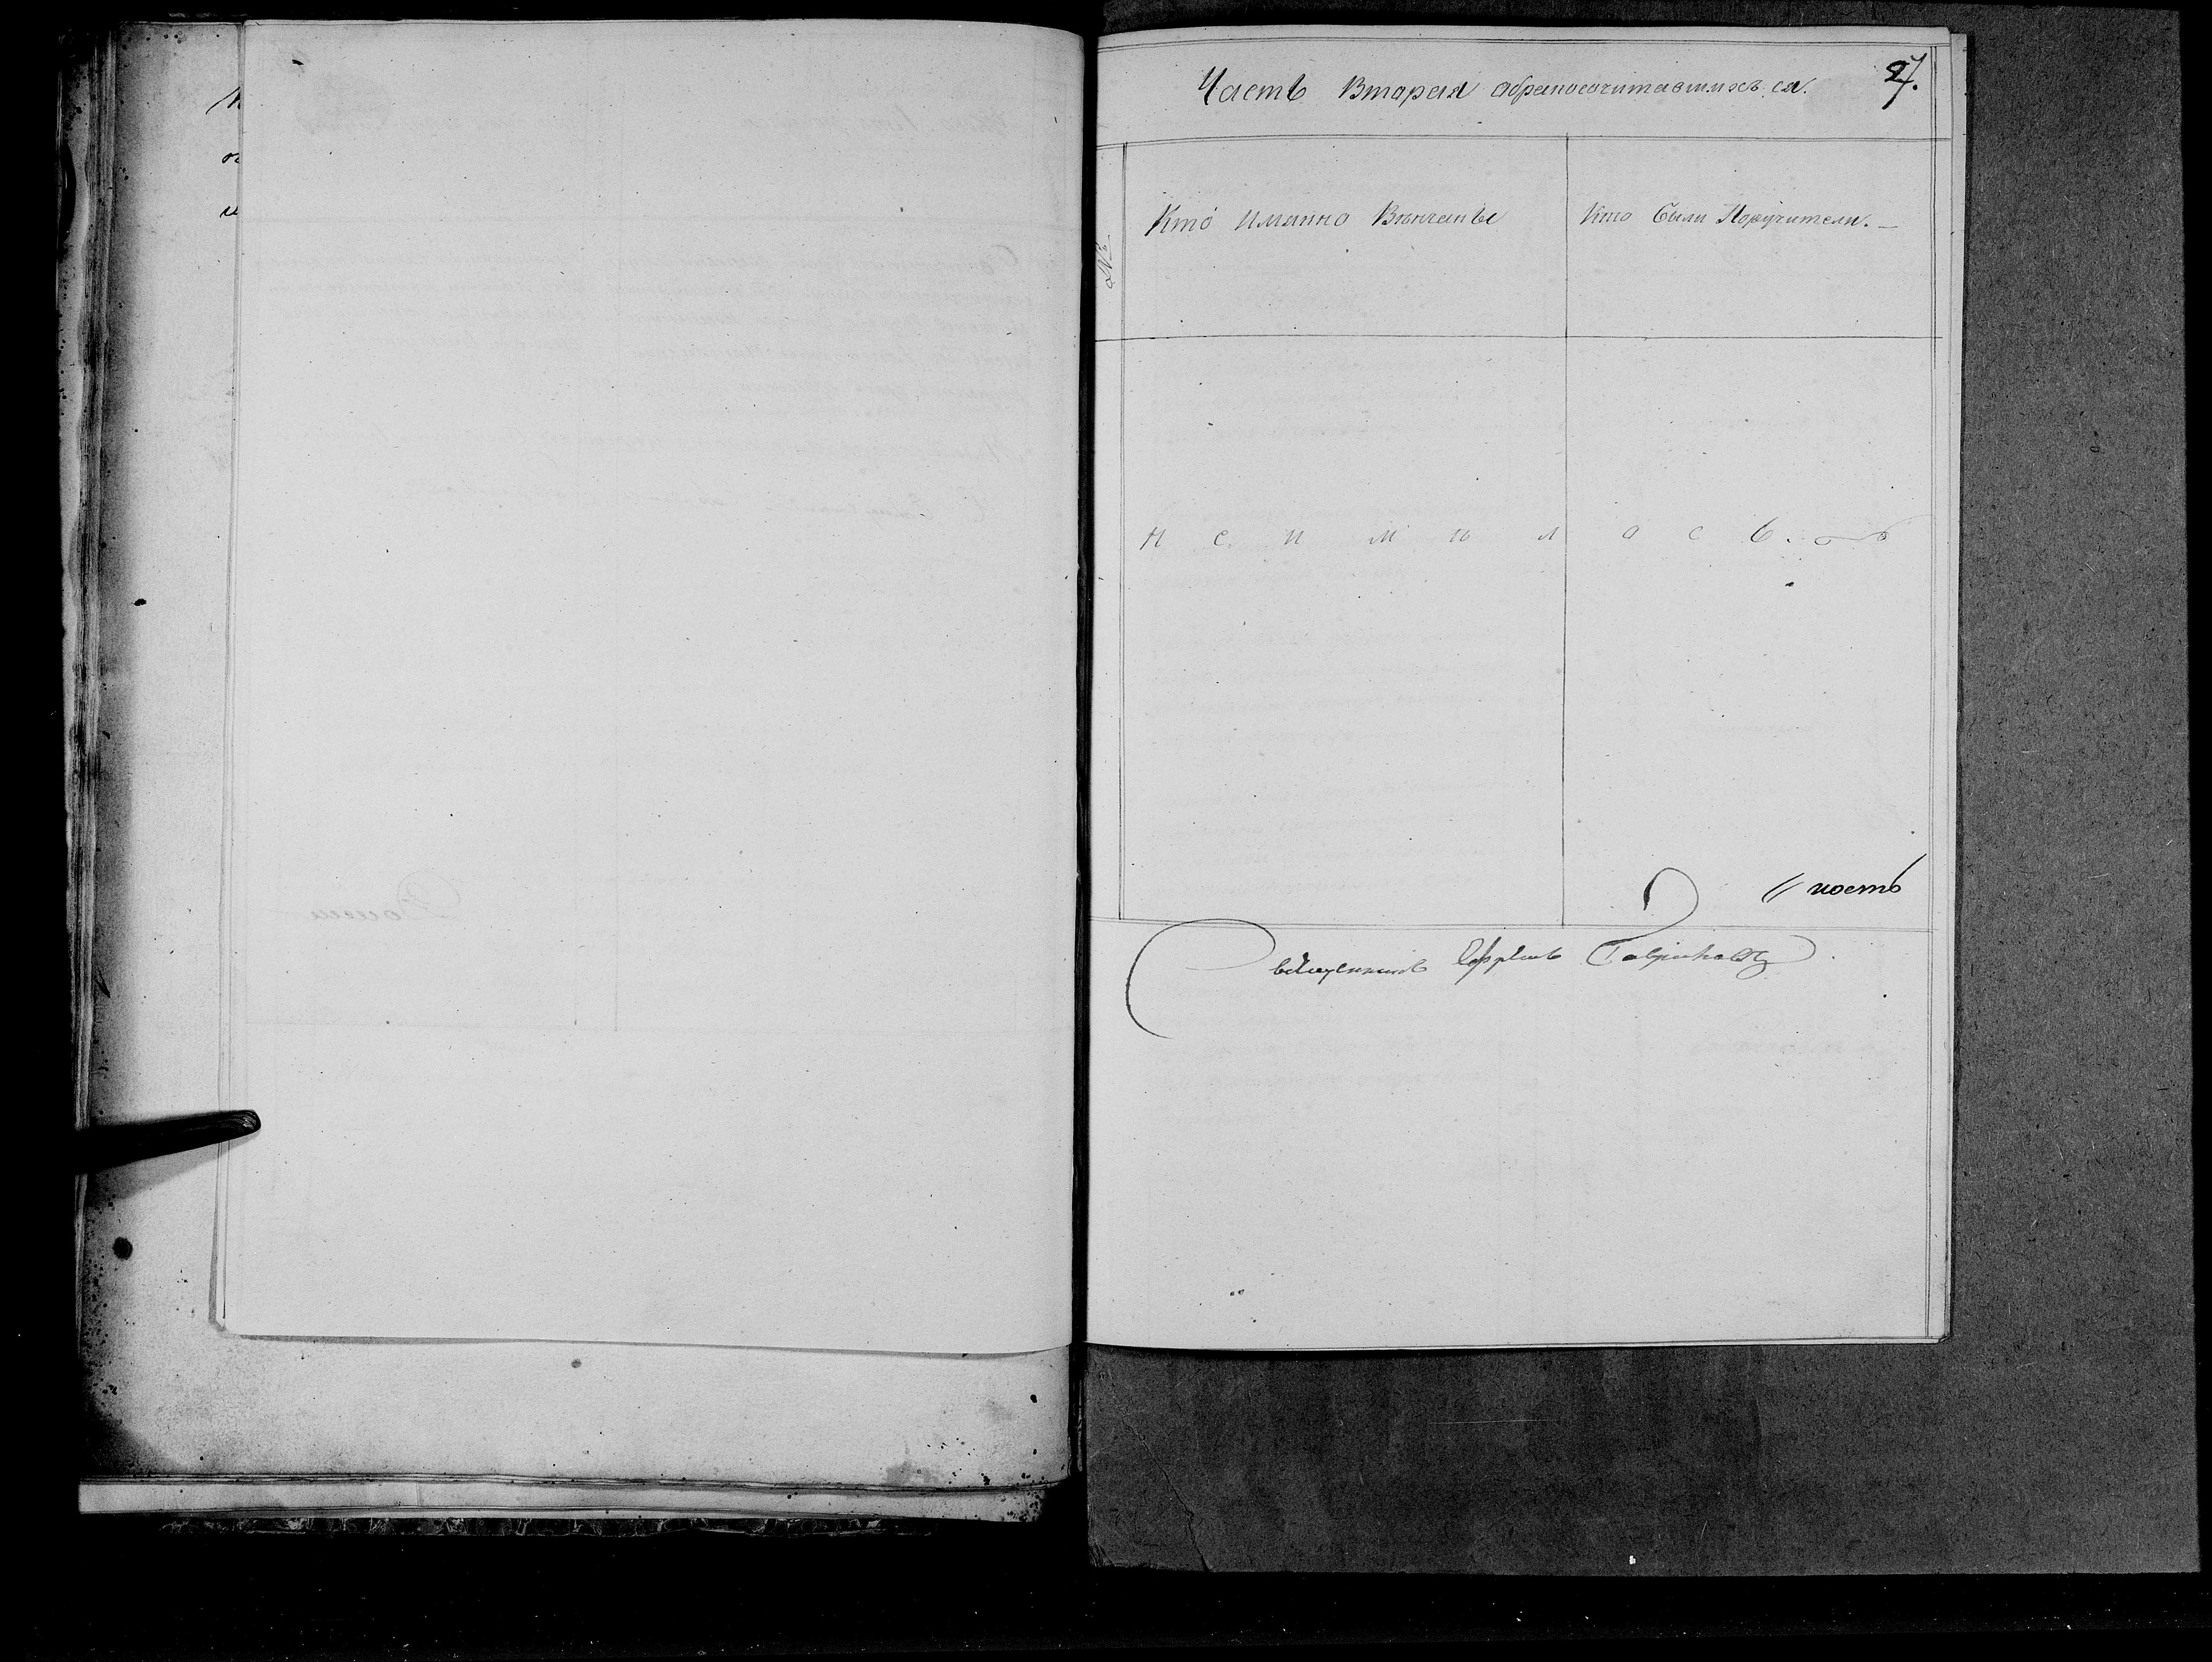 27.
Часть Вторая обракосочитавшихъ ся.
№
Кто имянно Вѣнчаны
Кто были Поручители.
н е и м ѣ л о с ь.
ность
Священникъ Ефремъ